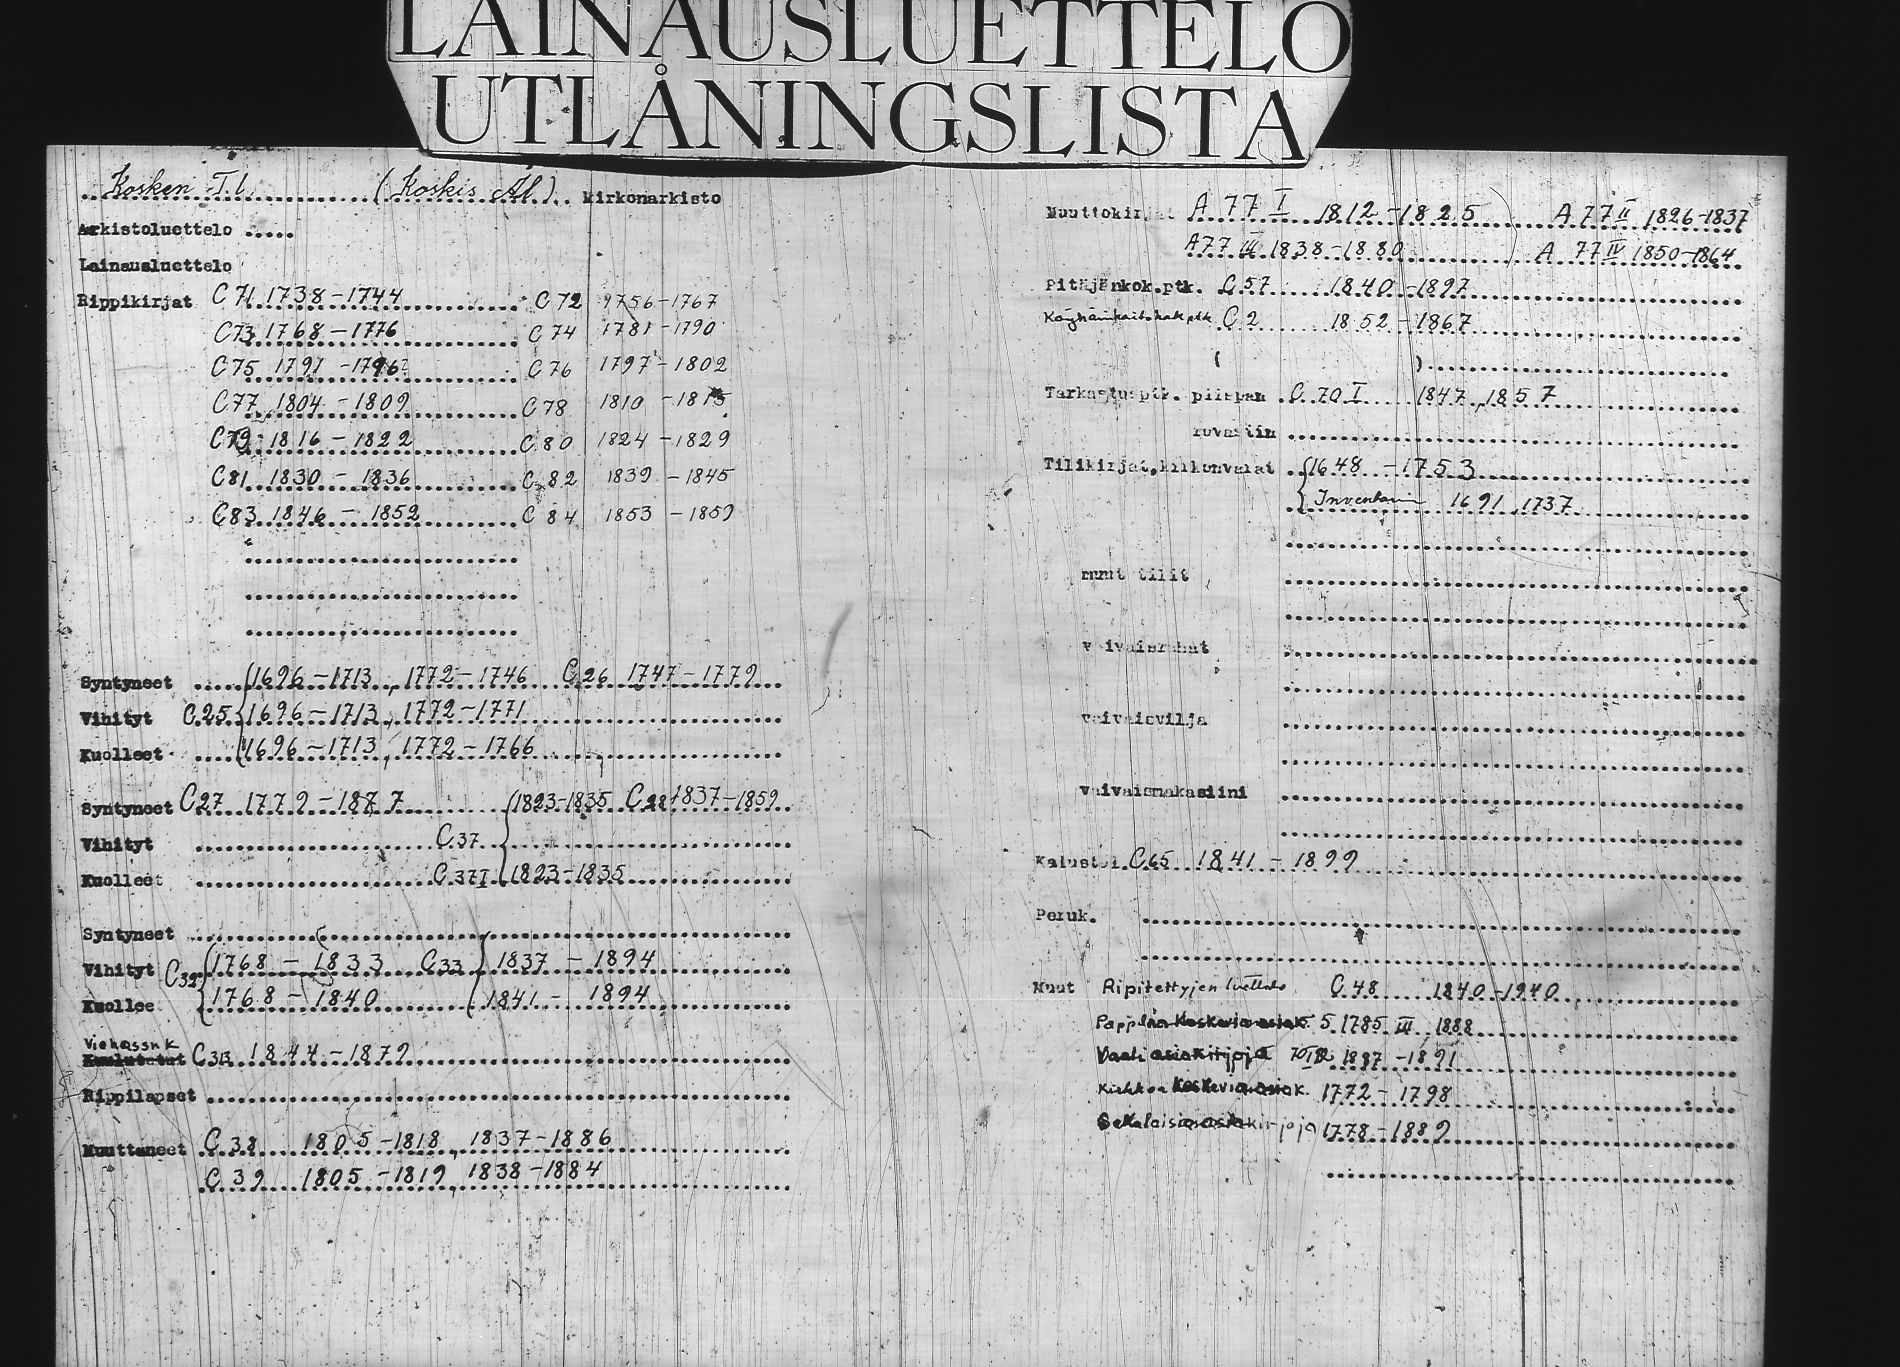 LAINAUSLUETTELO
UTLÅNINGSLISTA
Kosken T.l. (Koskis Ål.) Kirkonarkisto
Arkistoluettelo
Lainausluettelo
Rippikirjat C 71 1738-1744 C 72 1756-1767
C73 1768-1776 C 74 1781-1790
C75 1791-1796 C 76 1797-1802
C77 1804-1809 C 78 1810-1815
C79 1816-1822 C 80 1824-1829
C81 1830-1836 C 82 1839-1845
C83 1846-1852 C 84 1853-1859
Syntyneet 1696-1713, 1772-1746 C 26 1747-1779
Vihityt C 25 1696-1713, 1772-1771
Kuolleet 1696-1713, 1772-1766
Syntyneet C27 1779-1877 1823-1835 C28 1837-1859
Vihityt C 37
Kuolleet C 37 I 1823-1835
Syntyneet
Vihityt C32 1768-1833 C33 1837-1894
Kuollee 1768-1840 1841-1894
Kuulutetut 1844-1879
Rippilapset
Muuttaneet C 38 1805-1818, 1837-1886
C 39 1805-1819, 1838-1884
Muuttokirjat A 77 I 1812-1825 A 77 II 1826-1837
A 77 III 1838-1880 A 77 IV 1850-1864
Pitäjänkok.ptk. C 57 1840-1897
Köyhäinhoitohak ptk C 2 1852-1867
( )
Tarkastusptk. piispan C 70 I 1847, 1857
rovastin
Tilikirjat, kirkonvarat 1648-1753
1691, 1737
muut tilit
vaivaisrahat
vaivaisvilja
vaivaismakasiini
Kalustol. C65 1841-1899
Peruk.
Muut Ripitettyjen luettelo C 48 1840-1940
Pappilaa koskevia asiak. 5 1785 III 1888
Vaaliasiakirjoja 1887-1891
Kirkkoa koskevia asiak. 1772-1798
Sekalaisia asiakirjoja 1778-1889